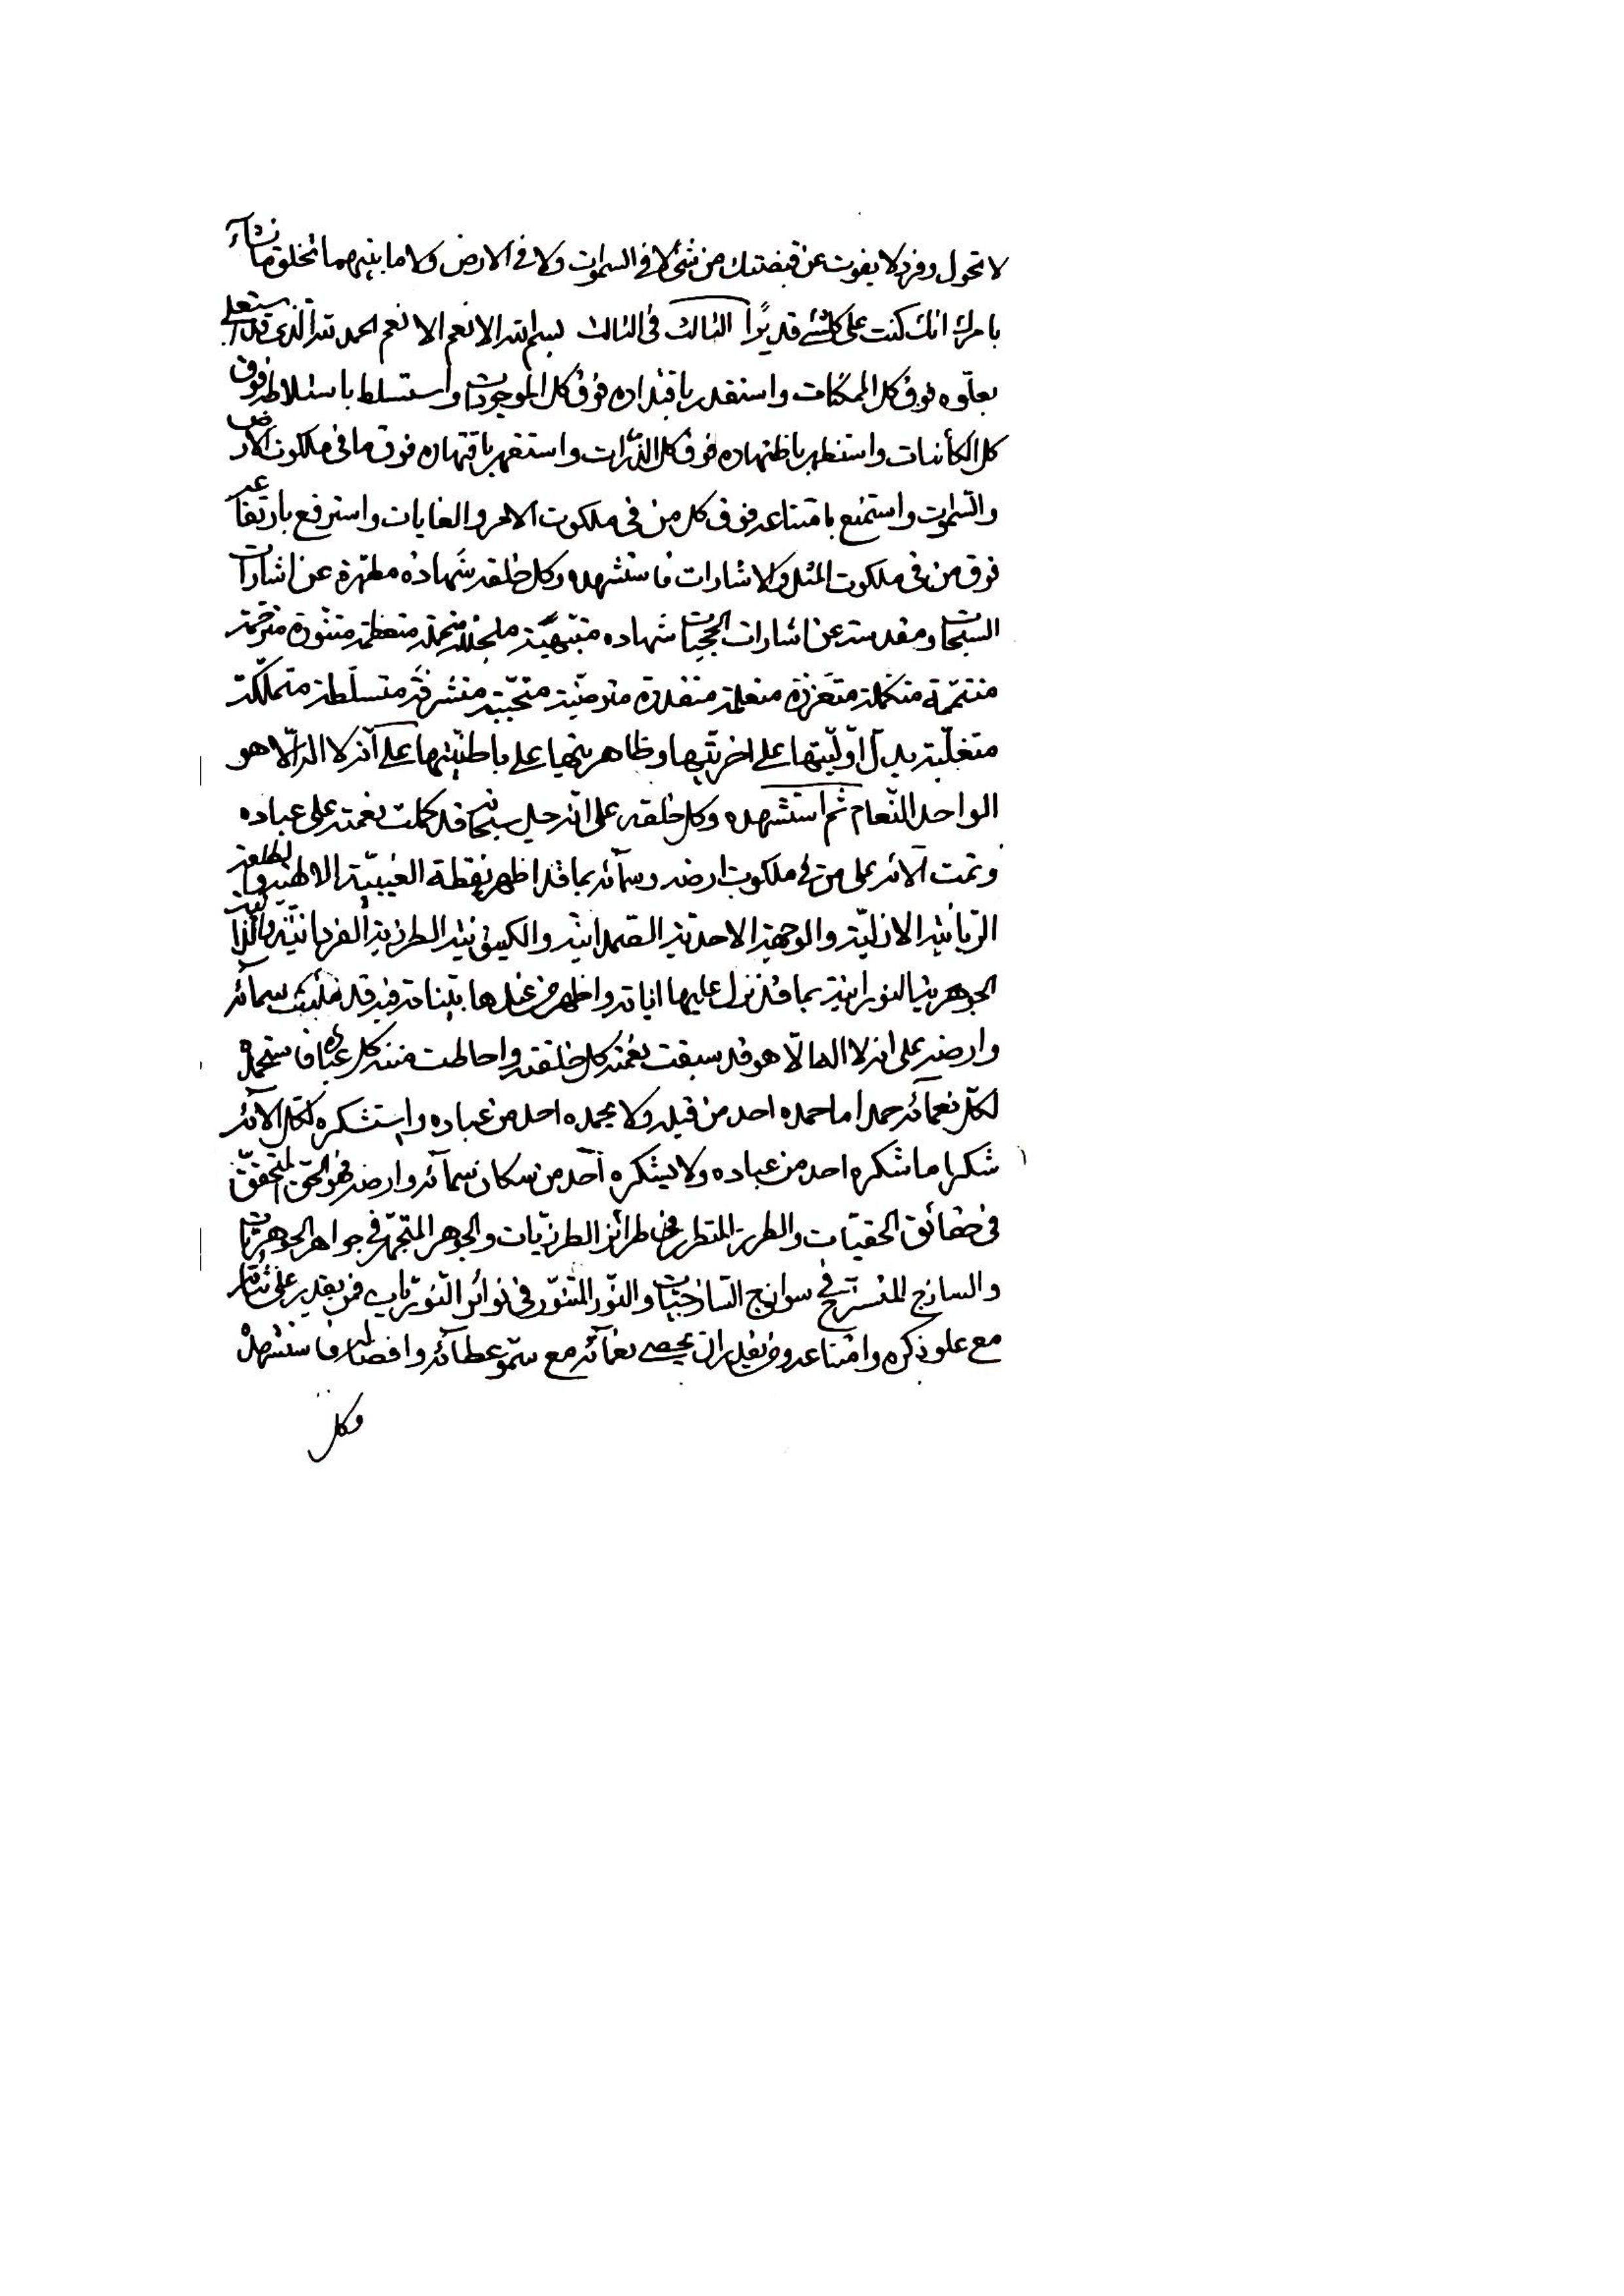 لا تحول وفرد لا يفوت عن قبضتك من شئ لا في السموات ولا في الارض ولا ما بينهما تخلق ما نشاء
بامرك انك كنت على كلشئ قديرا الثالث في الثالث بسم الله الانعم الانعم الحمد لله الذى قد استعلى
بعلوه فوق كل الممكنات واستقدر باقتداره فوق كل الموجودات واستسلط باستلاطه فوق
كل الكائنات واستظهر باظتهاره فوق كل الذرات واستقهر باقتهاره فوق ما في ملكوت الارض
والسموات واستمنع بامتناعه فوق كل من في ملكوت الامر والغايات واسترفع بارتفاعه
فوق من في ملكوت المثل والاشارات فاستشهده وكل خلقه شهادة مطهرة عن اشارات
السبحات ومقدسة عن اشارات الحجبات شهادة متبهية متجللة متجملة متعظمة متنورة مترحمة
متتممة متكملة متعززة متعلمة متقدرة مترضية متحببة متشرفة متسلطة متملكة
متعلية يدل اوليتها على اخريتها وظاهريتها على باطنيتها على انه لا اله الا هو
الواحد النعام ثم استشهده وكل خلقه على انه جل سبحانه قد كملت نعمته على عباده
وتمت آلائه على من في ملكوت ارضه وسمائه بما قد اظهر نقطة الغيبية الالهية وطلعة
الربانية الازلية والوجهة الاحدية الصمدانية والكينونية الطرزية الفردانية والذاتية
الجوهرية النورانية بما قد نزل عليها اياته واظهر من عندها بيناته فبه قد ملئت سمائه
وارضه على انه لا اله الا هو قد سبقت نعمته كل خلقته واحاطت مننه كل عباده فاستحمده
لكل نعمائه حمدا ما حمده احد من قبله ولا يحمده احد من عباده واستشكره لكل الائه
شكرا ما شكره احد من عباده ولا يشكره احد من سكان سمائه وارضه فهو الحق المتحقق
في حقائق الحقيات والطرز المتطرز في طرائز الطرزيات والجوهر المتجوهر في جواهر الجوهريات
والساذج المتسذج في سواذج الساذجيات والنور المتنور في نوائر النوريات فمن يقدر على ثنائه
مع علو ذكره وامتناعه ومن يقدر ان يحصى نعمائه مع سمو عطائه وافضاله فاستشهده
وكل